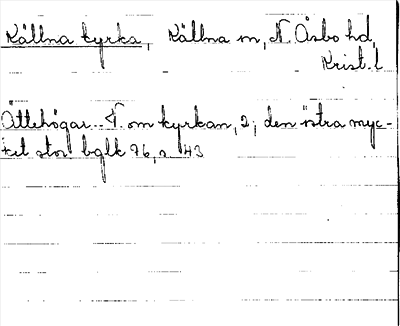 Källna kyrka, Källna sn, N. Åsbo hd,
Krist. l
Ättehögar. T. om kyrkan, 2; den östra myc-
ket stor bglk 76, s. 43